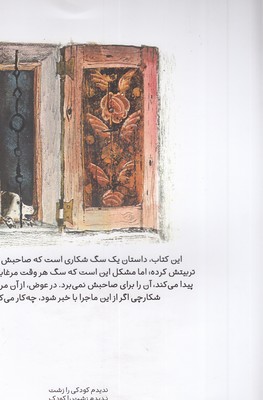 این کتاب، داستان یک سگ شکاری است که صاحبش
تربیتش کرده؛ اما مشکل این است که سگ هر وقت مرغابی
پیدا می‌کند، آن را برای صاحبش نمی‌برد. در عوض، از آن
شکارچی اگر از این ماجرا با خبر شود، چه‌کار
ندیدم کودکی را زشت
ندیدم زشت را کودک